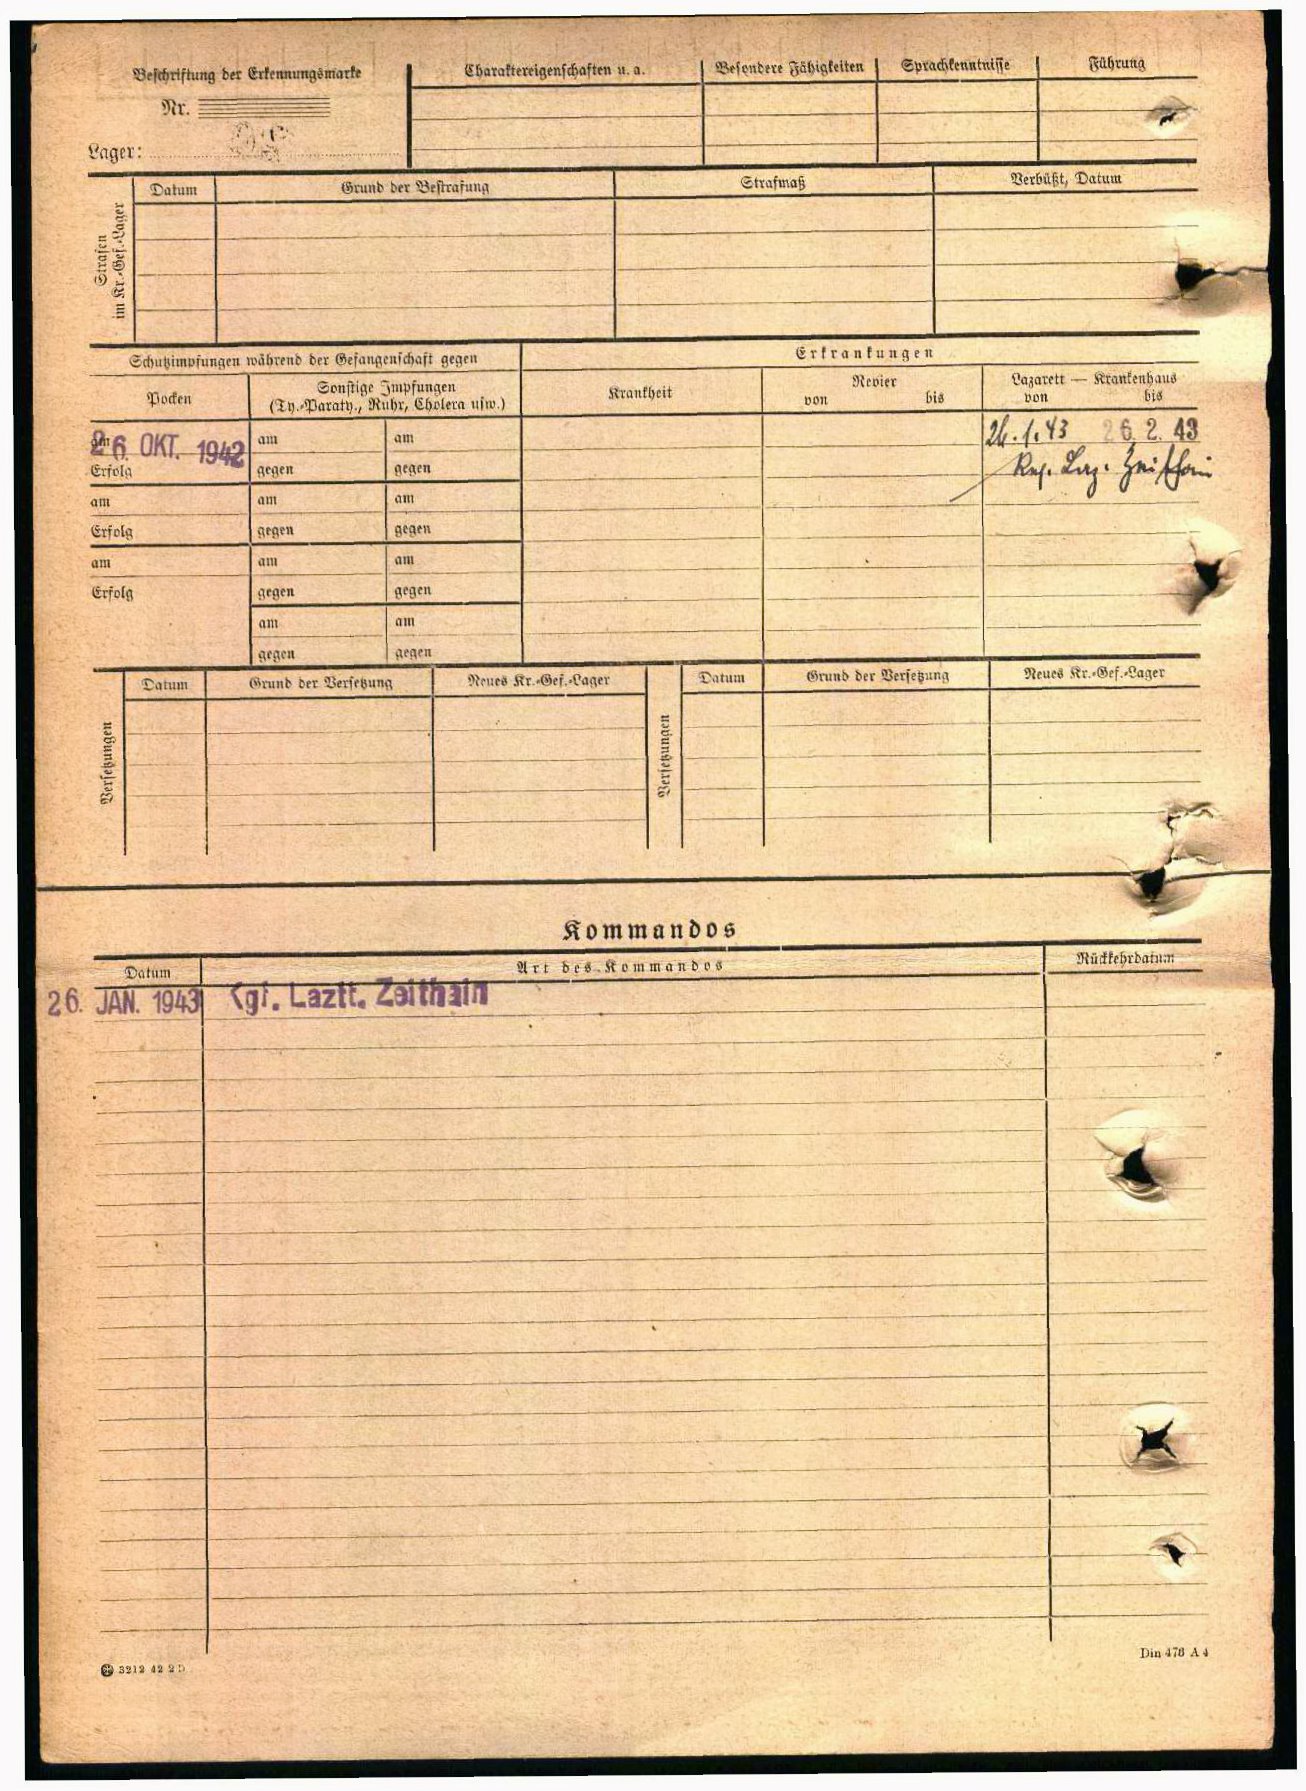 Beschriftung der Erkennungsmarke
Nr.
Lager:
Charaktereigenschaften u. a. Besondere Fähigkeiten Sprachkenntnisse Führung
Strafen
im Kr.-Gef.-Lager
Datum Grund der Bestrafung Strafmaß Verbüßt, Datum
Schutzimpfungen während der Gefangenschaft gegen
Pocken
Sonstige Impfungen
(Ty.-Paraty., Ruhr, Cholera usw.)
am 26. OKT. 1942 am am
Erfolg gegen gegen
am am am
Erfolg gegen gegen
am am am
Erfolg gegen gegen
am am
gegen gegen
Erkrankungen
Krankheit
Revier
von bis
Lazarett — Krankenhaus
von bis
26.1.43 26. 2. 43
Res. Laz. Zeithain
Versetzungen
Datum Grund der Versetzung Neues Kr.-Gef.-Lager
Versetzungen
Datum Grund der Versetzung Neues Kr.-Gef.-Lager
Kommandos
Datum Art des Kommandos Rückkehrdatum
26. JAN. 1943 Kgf. Laztt. Zeithain
3212 42 2 D
Din 476 A 4